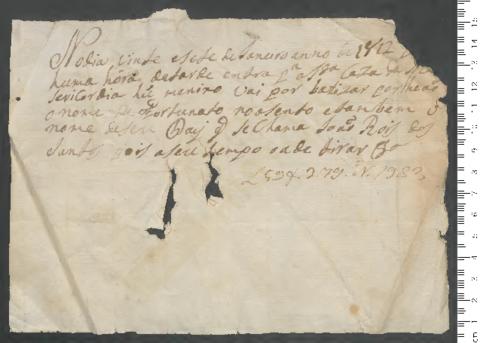 No dia vinte e sete de Janeiro anno de 1812
huma hora da tarde entra pª a Sta Caza da
Sericordia hũ menino vai por batizar porlheão
o nome de Fortunato no asento e tambem o
nome de seu Pay q̃ se chama João Rois dos
Santos pois a seu tempo o a de tirar